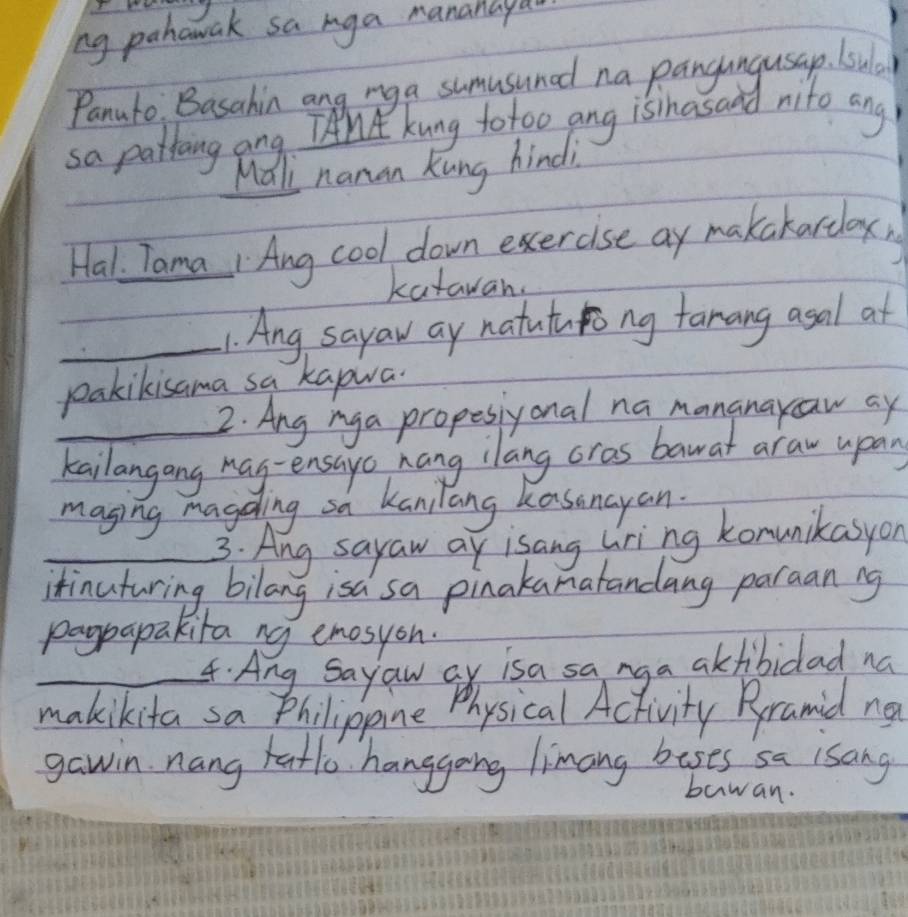 ng pahawak sa mga mananaya
Panuto: Basahin ang mga sumusunod na pangungusap. Isulat
sa patlang ang TAMA kung totoo ang isinasaad nito ang
Mali naman kung hindi.
Hal. Tama 1. Ang cool down exercise ay makakarelax ng
katawan.
1. Ang sayaw ay natuturo ng tamang asal at
pakikisama sa kapwa.
2. Ang mga propesiyonal na mananayaw ay
kailangang mag-ensayo nang ilang oras bawat araw upang
maging magaling sa kanilang kasanayan.
3. Ang sayaw ay isang uri ng komunikasyon
itinuturing bilang isa sa pinakamatandang paraan ng
pagpapakita ng emosyon.
4. Ang Sayaw ay isa sa mga aktibidad na
makikita sa Philippine Physical Activity Pyramid na
gawin nang tatlo hanggang limang beses sa isang
buwan.